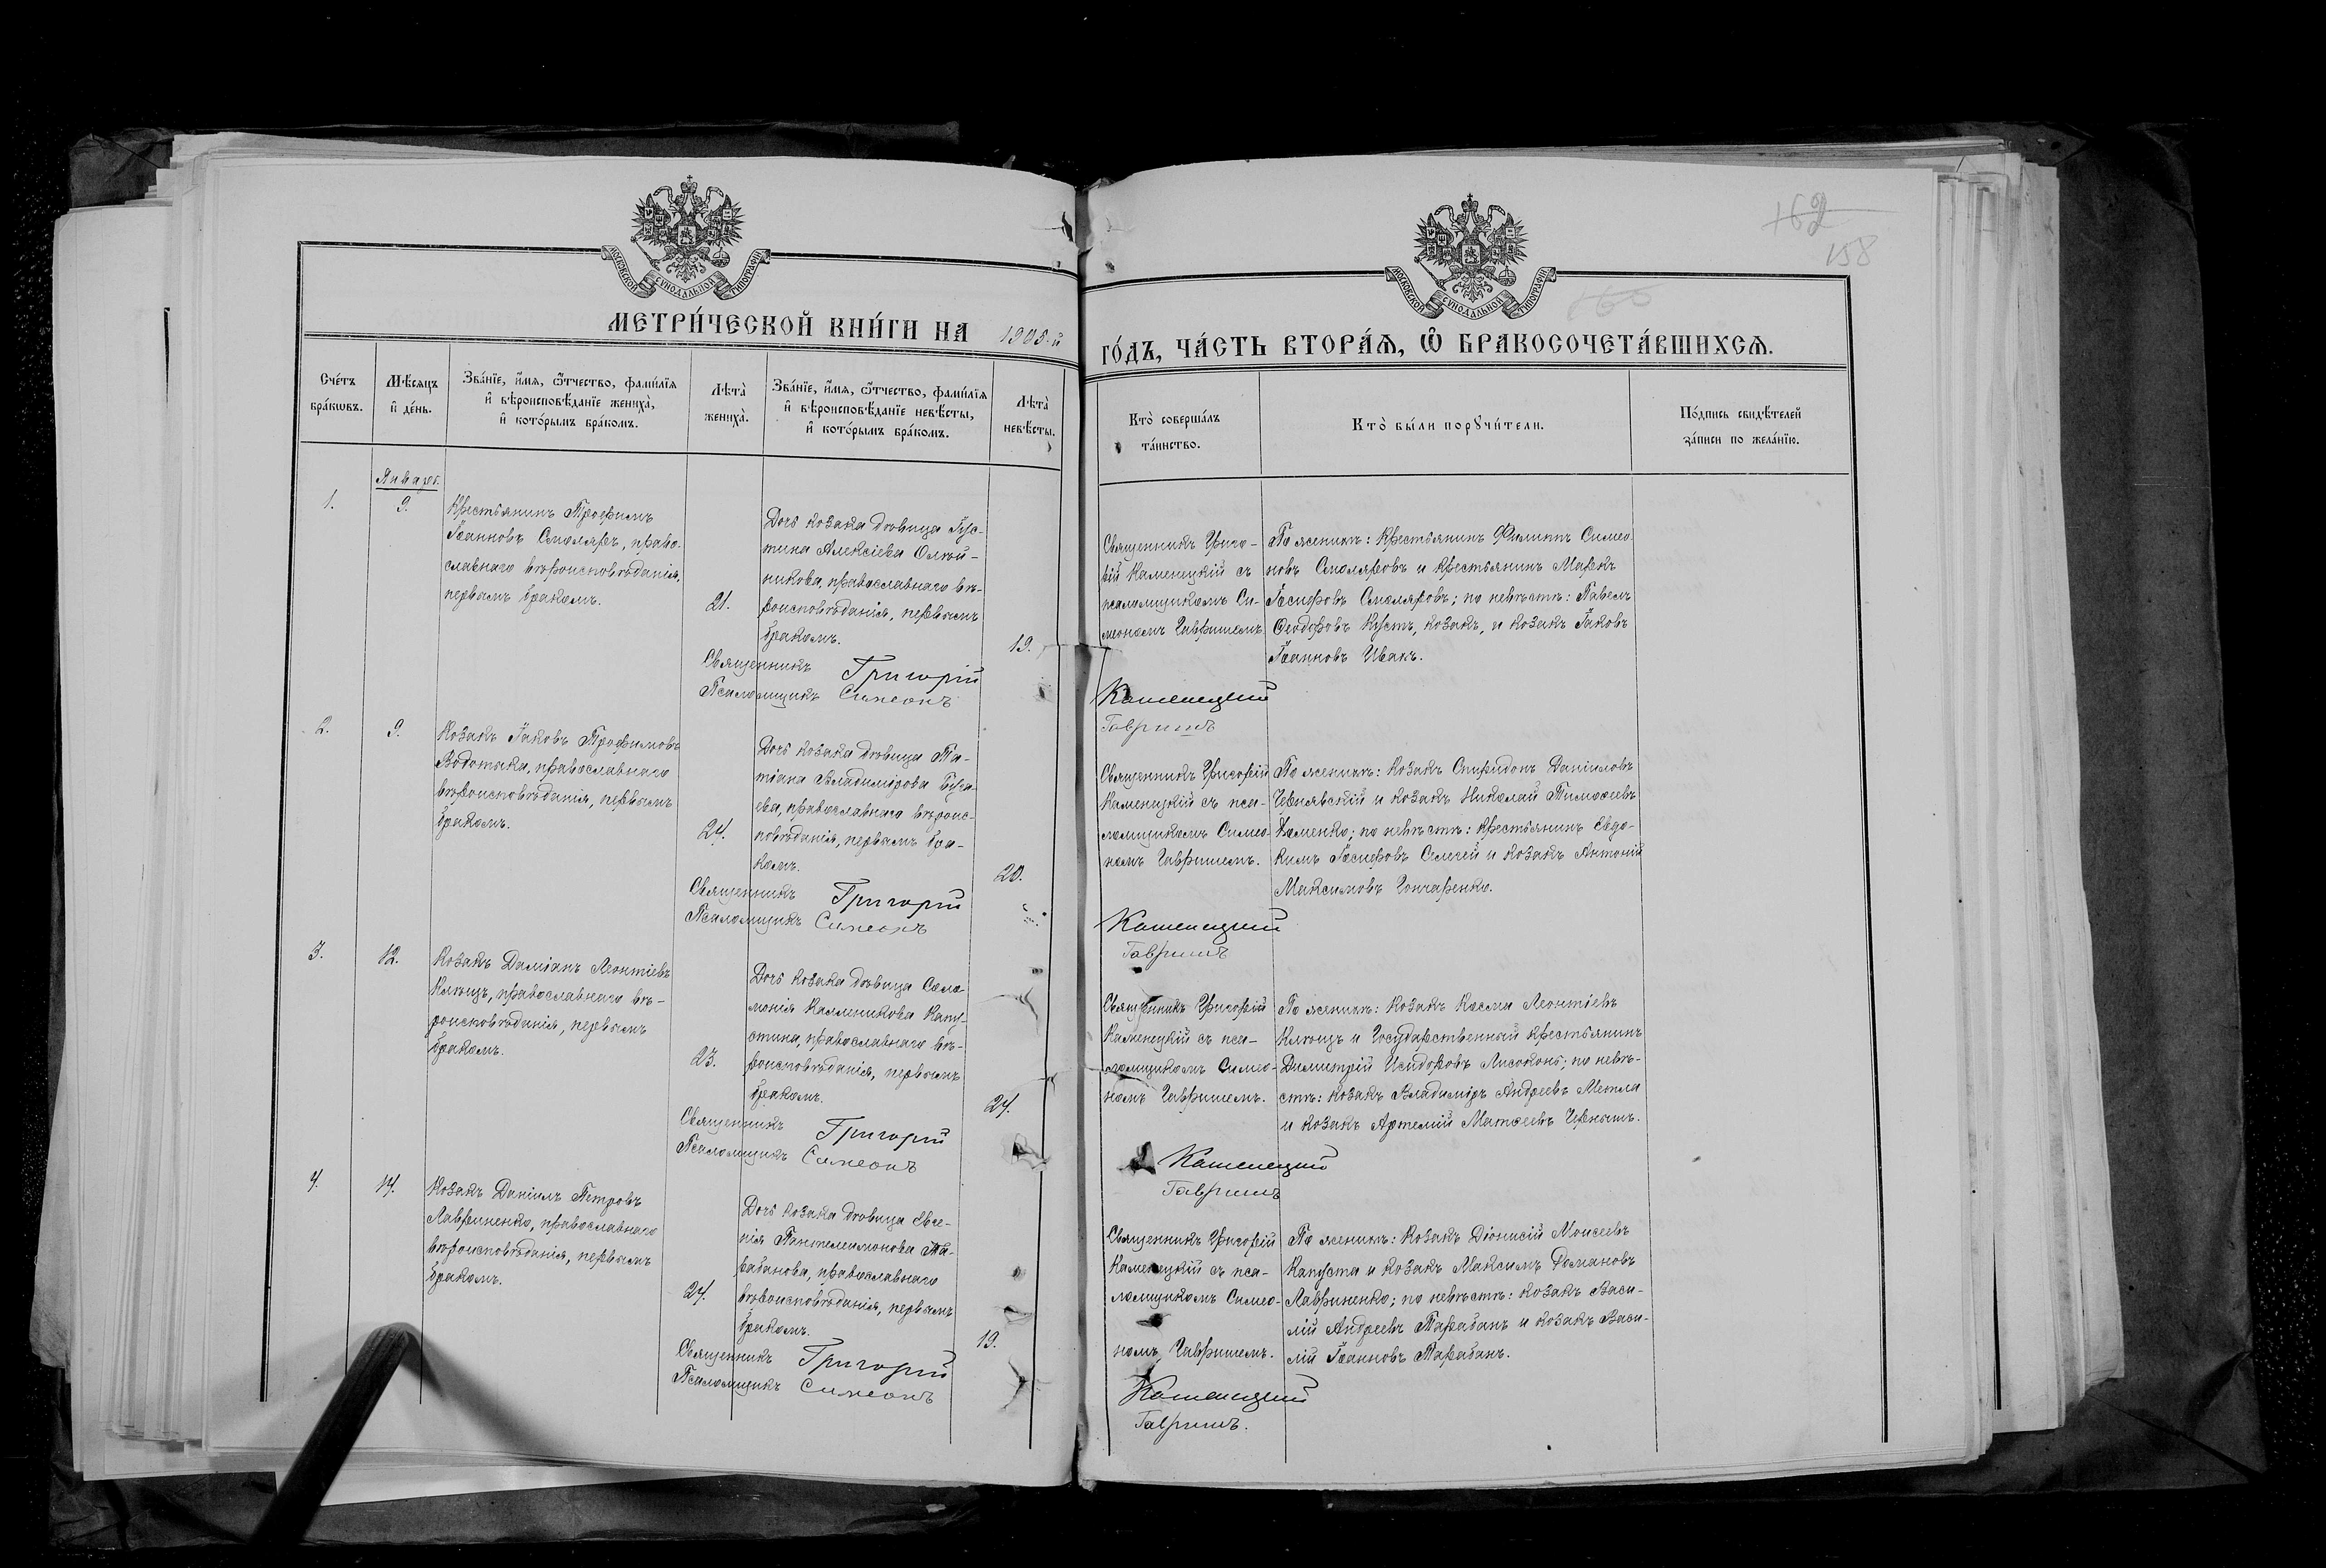 162
158
166
МОСКОВСКОЙ СѴНОДАЛЬНОЙ ТИПОГРАФІИ
МОСКОВСКОЙ СѴНОДАЛЬНОЙ ТИПОГРАФІИ
МЕТРИ́ЧЕСКОЙ КНИ́ГИ НА 1905.й
ГО́ДЪ, ЧА́СТЬ ВТОРА́Я, Ѡ҆ БРАКОСОЧЕТА́ВШИХСЯ.
Сче́тъ
бра́ковъ.
Мѣ́сяцъ
и҆ де́нь.
Зва́нїе, и҆́мя, ѻ҆́тчество, фами́лїя
и҆ вѣроисповѣ́данїе жениха̀,
и҆ кото́рымъ бра́комъ.
Лѣта̀
жениха̀.
Зва́нїе, и҆́мя, ѻ҆́тчество, фами́лїя
и҆ вѣроисповѣ́данїе невѣ́сты,
и҆ кото́рымъ бра́комъ.
Лѣта̀
невѣ́сты.
Кто̀ соверша́лъ
та́инство.
Кто̀ бы́ли порꙋчи́тели.
По́дпись свидѣ́телей
за́писи по жела́нїю.
Январь.
1.
9.
Крестьянинъ Трофимъ
Іоанновъ Смоляръ, право-
славнаго вѣроисповѣданія,
первымъ бракомъ.
21.
Дочь козака дѣвица Іус-
тина Алексіева Олей-
никова, православнаго вѣ-
роисповѣданія, первымъ
бракомъ.
19.
Священникъ Григорій
Псаломщикъ Симеонъ
Священникъ Григо-
рій Каменецкій съ
псаломщикомъ Си-
меономъ Гавришемъ
По женихѣ: Крестьянинъ Филиппъ Симео-
новъ Смоляровъ и крестьянинъ Маркъ
Іосифовъ Смоляровъ; по невѣстѣ: Павелъ
Ѳеодоровъ Кустъ, козакъ, и козакъ Іаковъ
Іоанновъ Ивахъ.
Каменецкий
Гавришъ
2.
9.
Козакъ Іаковъ Трофимовъ
Водотыка, православнаго
вѣроисповѣданія, первымъ
бракомъ.
24.
Дочь козака дѣвица Та-
тіана Владимірова
православнаго вѣроис-
повѣданія, первымъ бра-
комъ.
20.
Священникъ Григорій
Псаломщикъ Симеонъ
Священникъ Григорій
Каменецкій съ пса-
ломщикомъ Симео-
номъ Гавришемъ.
По женихѣ: козакъ Спиридонъ Даніиловъ
Чернявскій и козакъ Николай Тимоѳеевъ
Хоменко; по невѣстѣ: крестьянинъ Евдо-
кимъ Іосифовъ Селегей и козакъ Антоній
Максимовъ Гончаренко.
Каменецкий
Гавришъ
3.
12.
Козакъ Даміанъ Леонтіевъ
Клющъ, православнаго вѣ-
роисповѣданія, первымъ
бракомъ.
23.
Дочь козака дѣвица Соло-
монія Калленикова Капу-
стина, православнаго вѣ-
роисповѣданія, первымъ
бракомъ.
24.
Священникъ Григорій
Псаломщикъ Симеонъ
Священникъ Григорій
Каменецкій съ пса-
ломщикомъ Симео-
номъ Гавришемъ.
По женихѣ: козакъ Косма Леонтіевъ
Клющъ и Государственный крестьянинъ
Димитрій Исидоровъ Лисоконь; по невѣ-
стѣ: козакъ Владиміръ Андреевъ Метла
и козакъ Артемій Матѳеевъ
Каменецкий
Гавришъ
4.
14.
Козакъ Даніилъ Петровъ
Лавриненко, православнаго
вѣроисповѣданія, первымъ
бракомъ.
24.
Дочь козака дѣвица Евге-
нія Пантелеимонова Та-
рабанова, православнаго
вѣроисповѣданія, первымъ
бракомъ.
19.
Священникъ Григорій
Псаломщикъ Симеонъ
Священникъ Григорій
Каменецкій съ пса-
ломщикомъ Симео-
номъ Гавришемъ.
По женихѣ: козакъ Діонисій Моисеевъ
Капуста и козакъ Максимъ Романовъ
Лавриненко; по невѣстѣ: козакъ Васи-
лій Андреевъ Тарабанъ и козакъ Васи-
лій Іоанновъ Тарабанъ.
Каменецкий
Гавришъ.